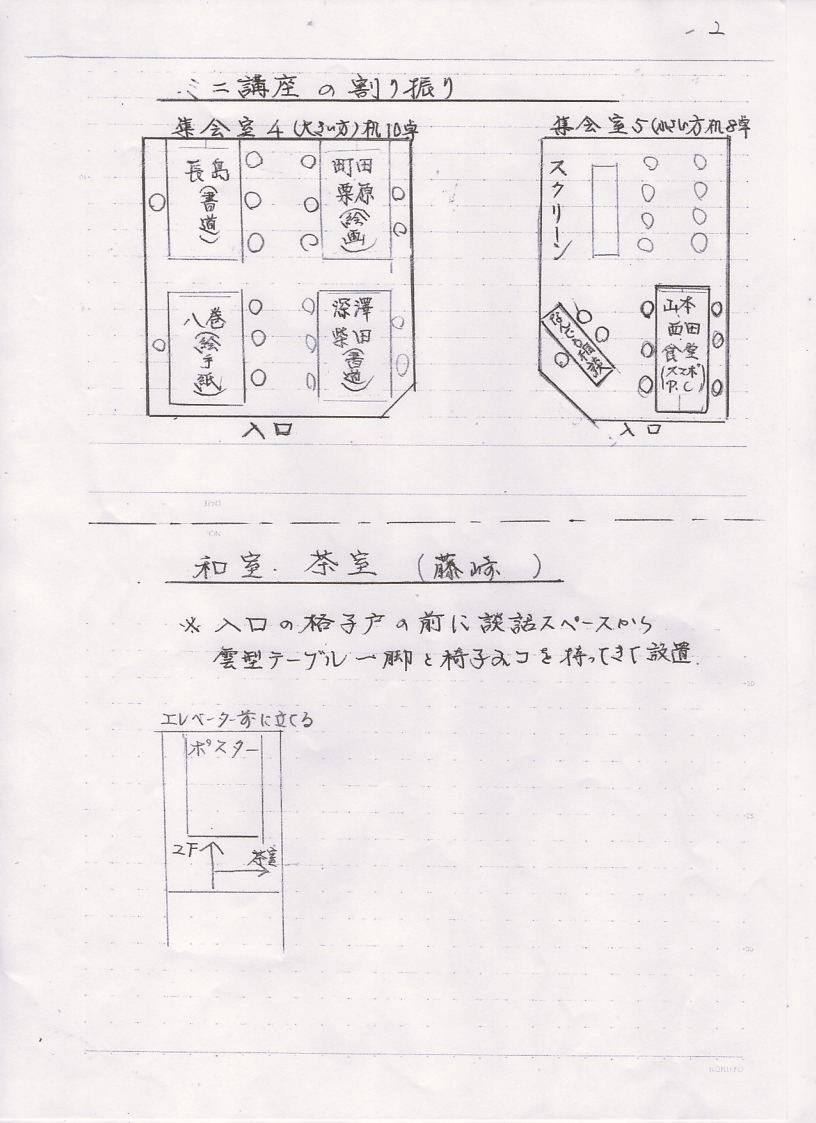 - 2
ミニ講座の割り振り
集会室4(大きい方)机10卓
長島
(書道)
町田
栗原
(絵画)
八巻
(絵手紙)
深澤
柴田
(書道)
入口
集会室5(小さい方)机8卓
スクリーン
山本
西田
食堂
(スマホ
P.C)
入口
和室.茶室(藤崎)
※入口の格子戸の前に談話スペースから
雲型テーブル一脚と椅子2コを持ってきて設置.
エレベーター前に立てる
ポスター
2F
茶室
KOKUYO